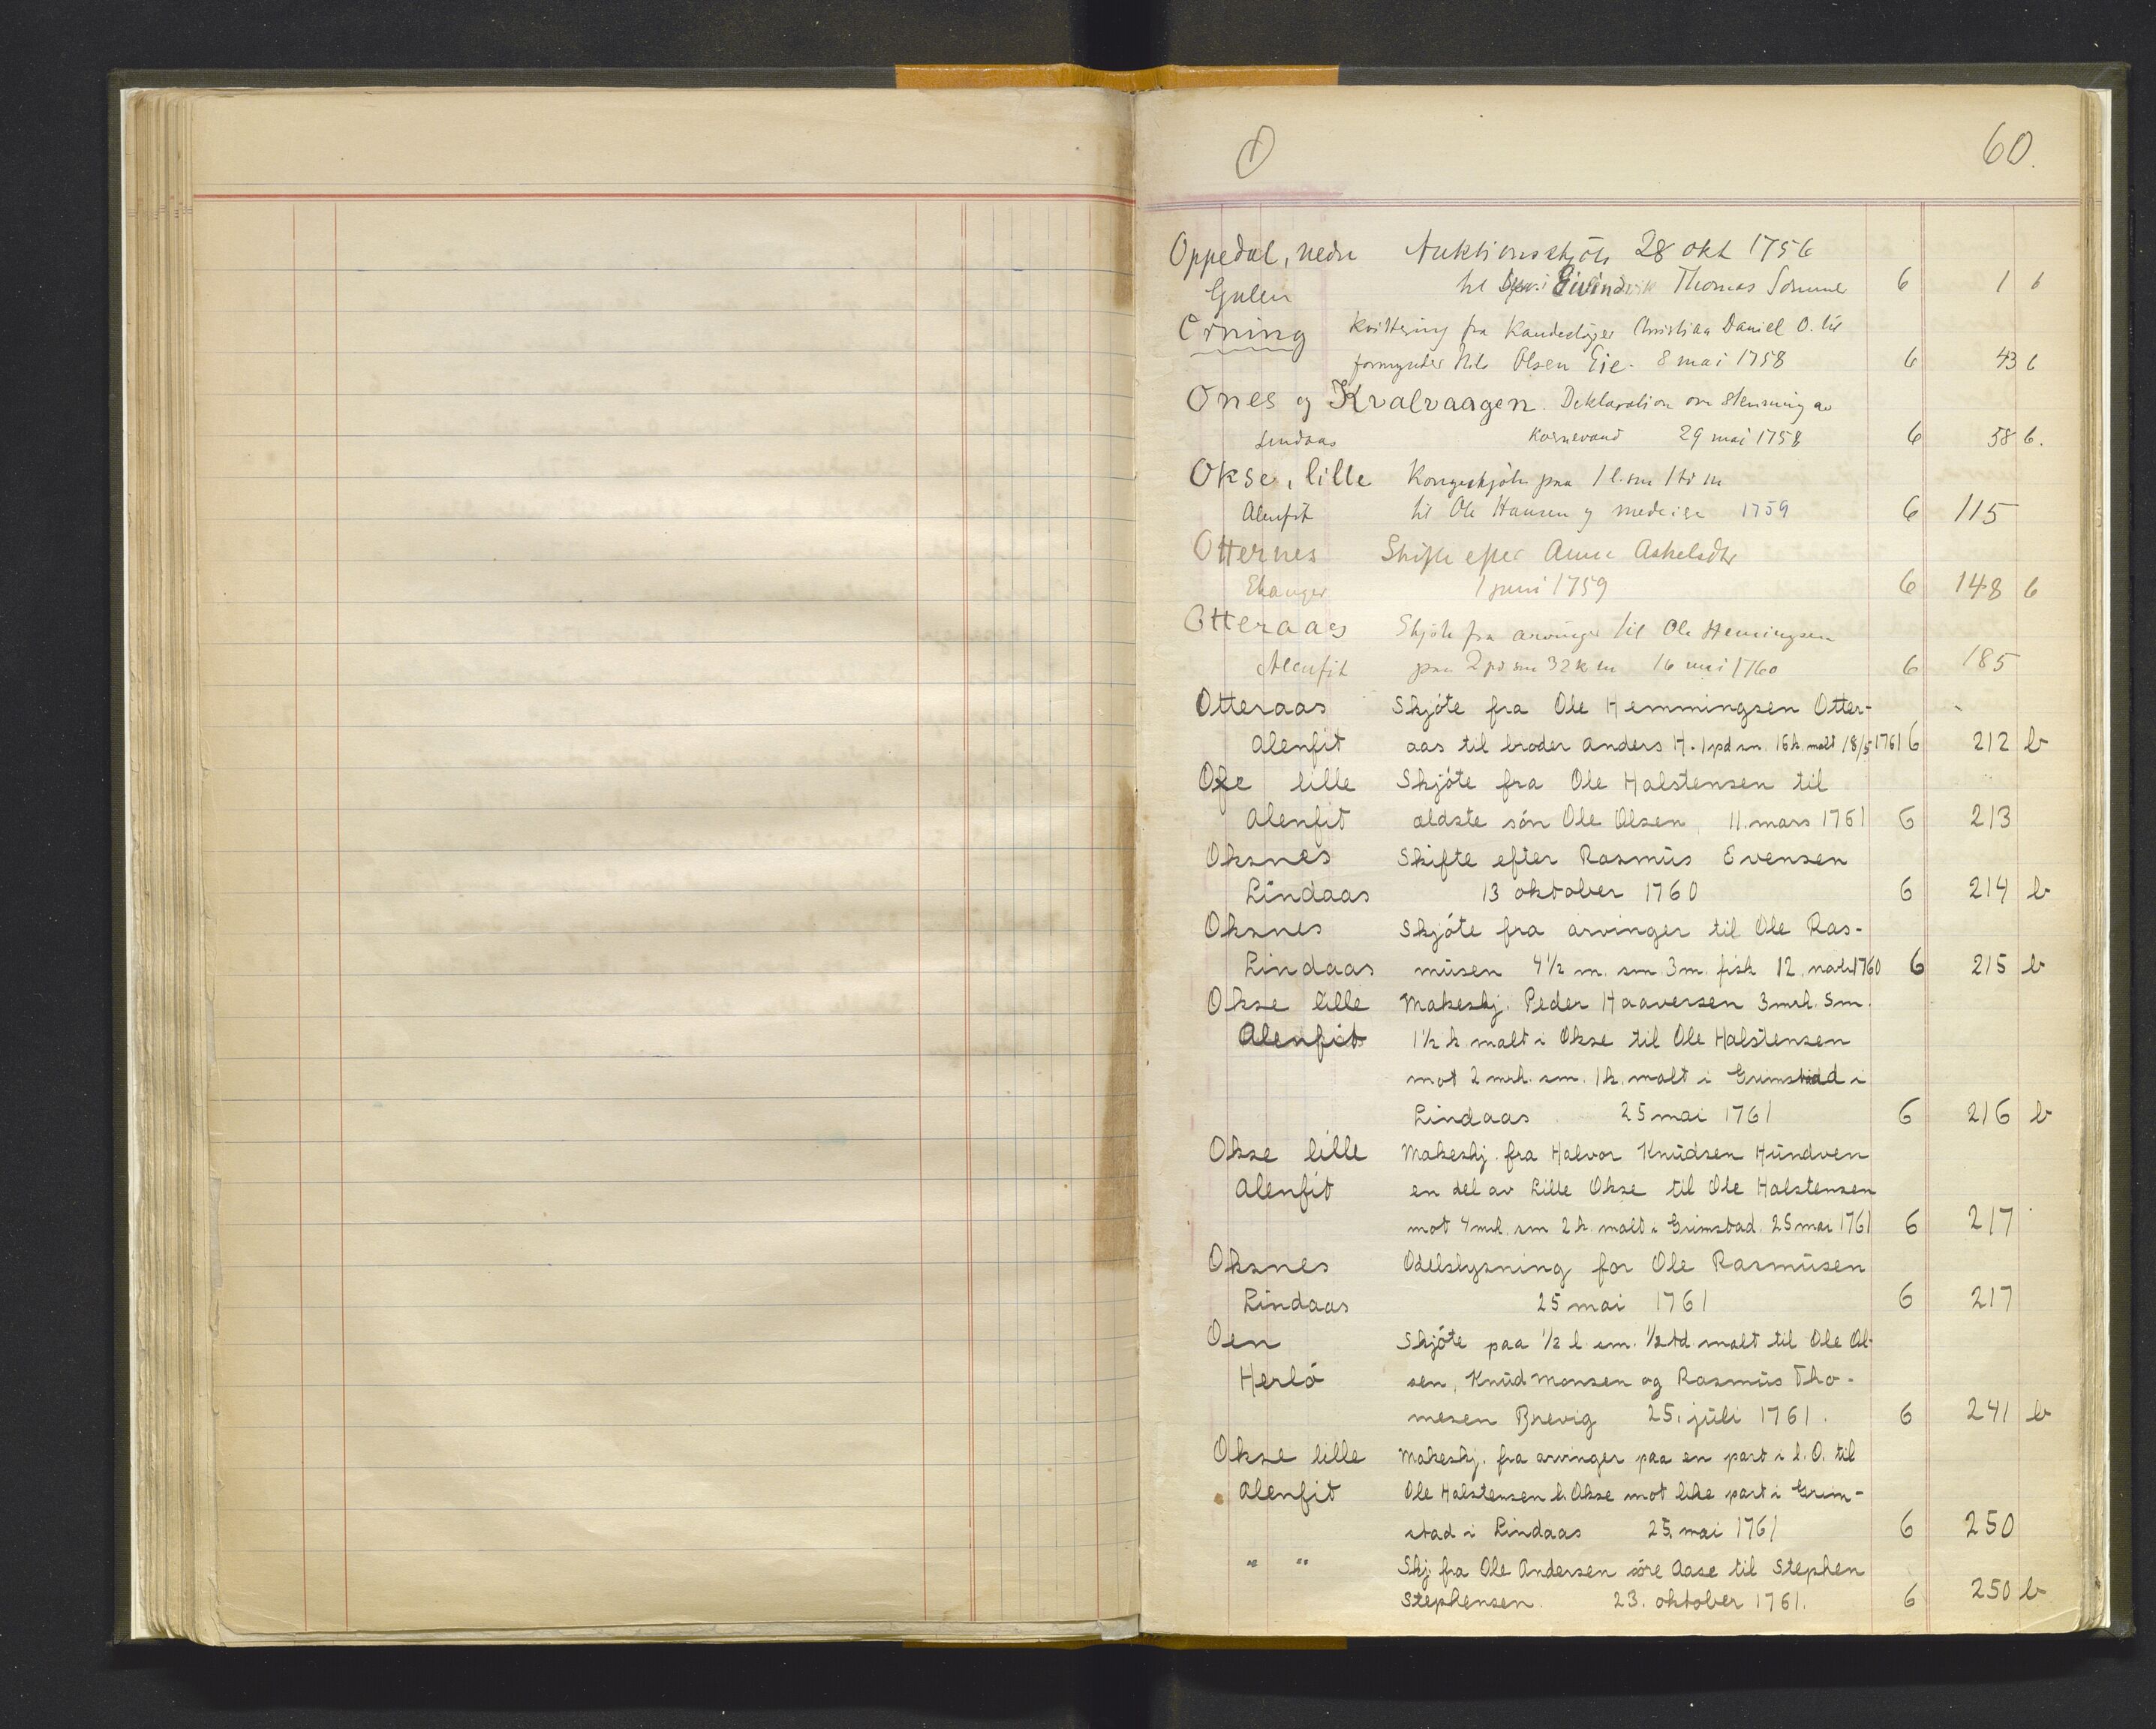 O 60.
Oppedal, nedre Auktionsskjöte 28 okt 1756
Gulen til Eivindvik Thomas 6 1 b
Erning Kvittering fra Christian Daniel O. til
formynder Nils Olsen Eie. 8 mai 1758 6 43 b
Ones og Kvalvaagen. Deklaration om stemning av
Lindaas Kornevand 29 mai 1758 6 58 b.
Okse, lille Kongeskjöte paa 1 l. sm 1 td m
Alenfit til Ole Hansen og medeier 1759 6 115
Otternes Skifte efter Anne Askelsdtr
Ekanger 1 juni 1759 6 148 b
Otteraas Skjöte fra arvinger til Ole Hemingsen
Alenfit paa 2 pd sm 32 k m 16 mai 1760 6 185
Otteraas Skjöte fra Ole Hemmingsen Otter-
Alenfit aas til broder Anders H. 1 pd sm. 16 k. malt 18/5 1761 6 212 b
Oxe lille Skjöte fra Ole Halstensen til
Alenfit ældste sön Ole Olsen, 11. mars 1761 6 213
Oksnes Skifte efter Rasmus Evensen
Lindaas 13 oktober 1760 6 214 b
Oksnes Skjöte fra arvinger til Ole Ras-
Lindaas musen 4 1/2 m. sm 3 m. fisk 12. novbr 1760 6 215 b
Okse lille Makeskj. Peder Haaversen 3 mrk. sm.
Alenfit 1 1/2 k malt i Okse til Ole Halstensen
mot 2 mrk. sm. 1 k. malt i Grimstad i
Lindaas 25 mai 1761 6 216 b
Okse lille Makeskj. fra Halvor Knudsen Hundven
Alenfit en del av Lille Okse til Ole Halstensen
mot 4 mrk. sm 2 k. malt i Grimstad. 25 mai 1761 6 217
Oksnes Odelslysning for Ole Rasmusen
Lindaas 25 mai 1761 6 217
Oen Skjöte paa 1/2 l. sm. 1/2 td. malt til Ole Ol-
Herlö sen, Knud Monsen og Rasmus Tho-
mesen Brevig 25. juli 1761. 6 241 b
Okse lille Makeskj. fra arvinger paa en part i l. O. til
Alenfit Ole Halstensen l. Okse mot like part i Grim-
stad i Lindaas 25. mai 1761 6 250
" " Skj. fra Ole Andersen söre Aase til Stephen
Stephensen. 23. oktober 1761. 6 250 b